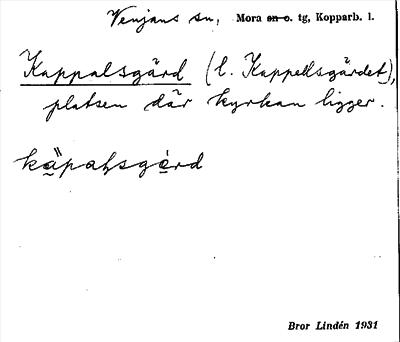 Venjans sn, Mora sn o. tg, Kopparb. l.
Kappalsgärd (l. Kappellsgärdet),
platsen där kyrkan ligger.
kä̀pal̥sgérd
Bror Lindén 1931